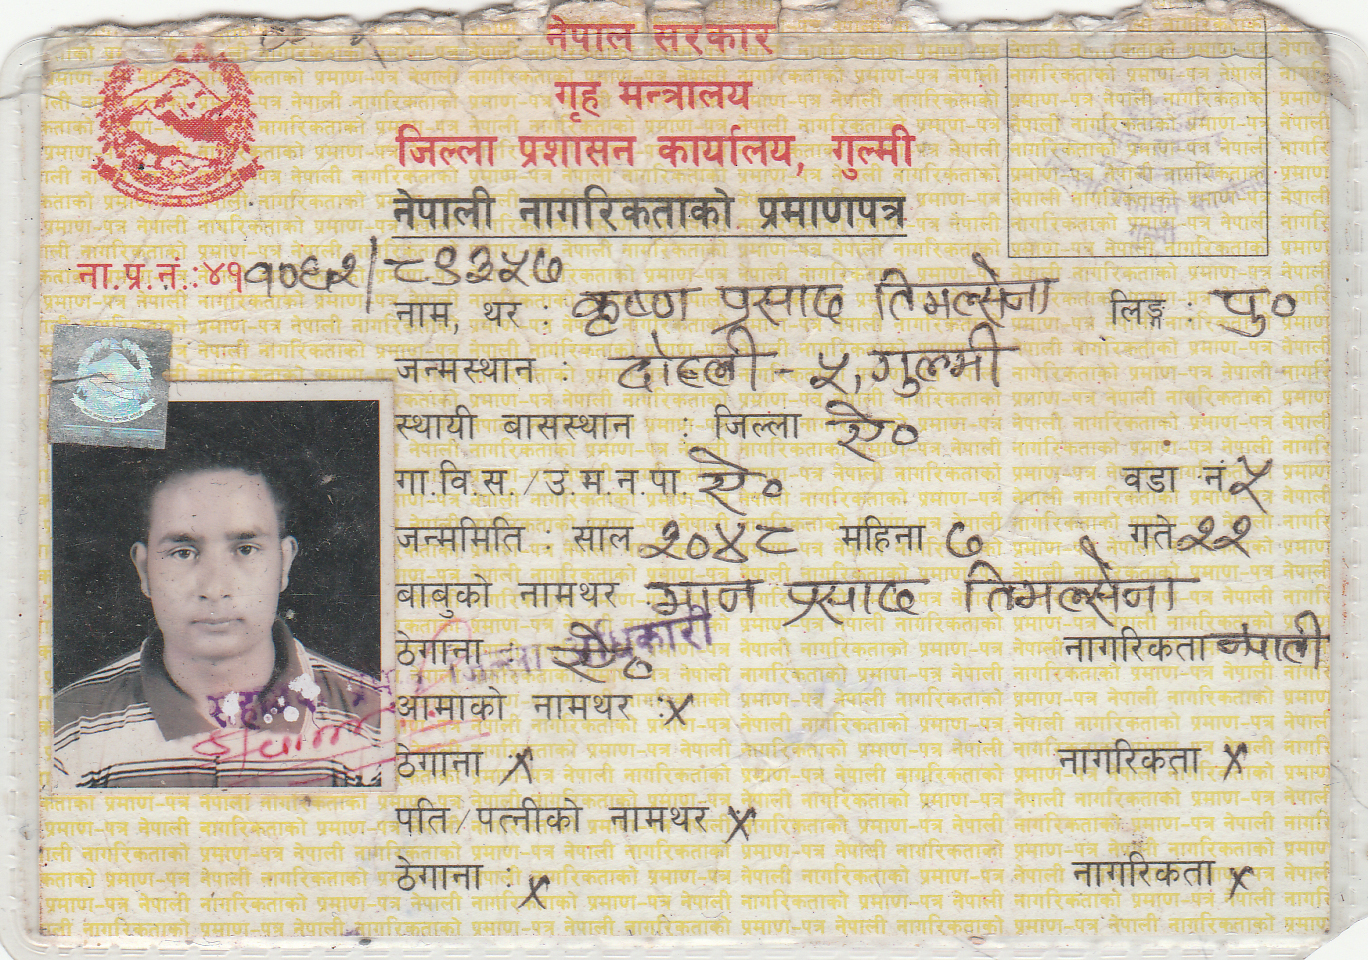 नेपाल सरकार
गृह मन्त्रालय
जिल्ला प्रशासन कार्यालय, गुल्मी
नेपाली नागरिकताको प्रमाणपत्र
ना.प्र.नं.:४११०६२/८९३५७
नाम, थर : कृष्ण प्रसाद तिमल्सेना लिङ्ग : पु०
जन्मस्थान : दोहली - ५, गुल्मी
स्थायी बासस्थान : जिल्ला ऐ०
गा.वि.स./उ.म.न.पा. ऐ० वडा नं ५
जन्ममिति : साल २०४८ महिना ७ गते २२
बाबुको नामथर मान प्रसाद तिमल्सेना
ठेगाना : ऐ० नागरिकता नेपाली
आमाको नामथर : x
ठेगाना x नागरिकता x
पति/पत्नीको नामथर x
ठेगाना : x नागरिकता x